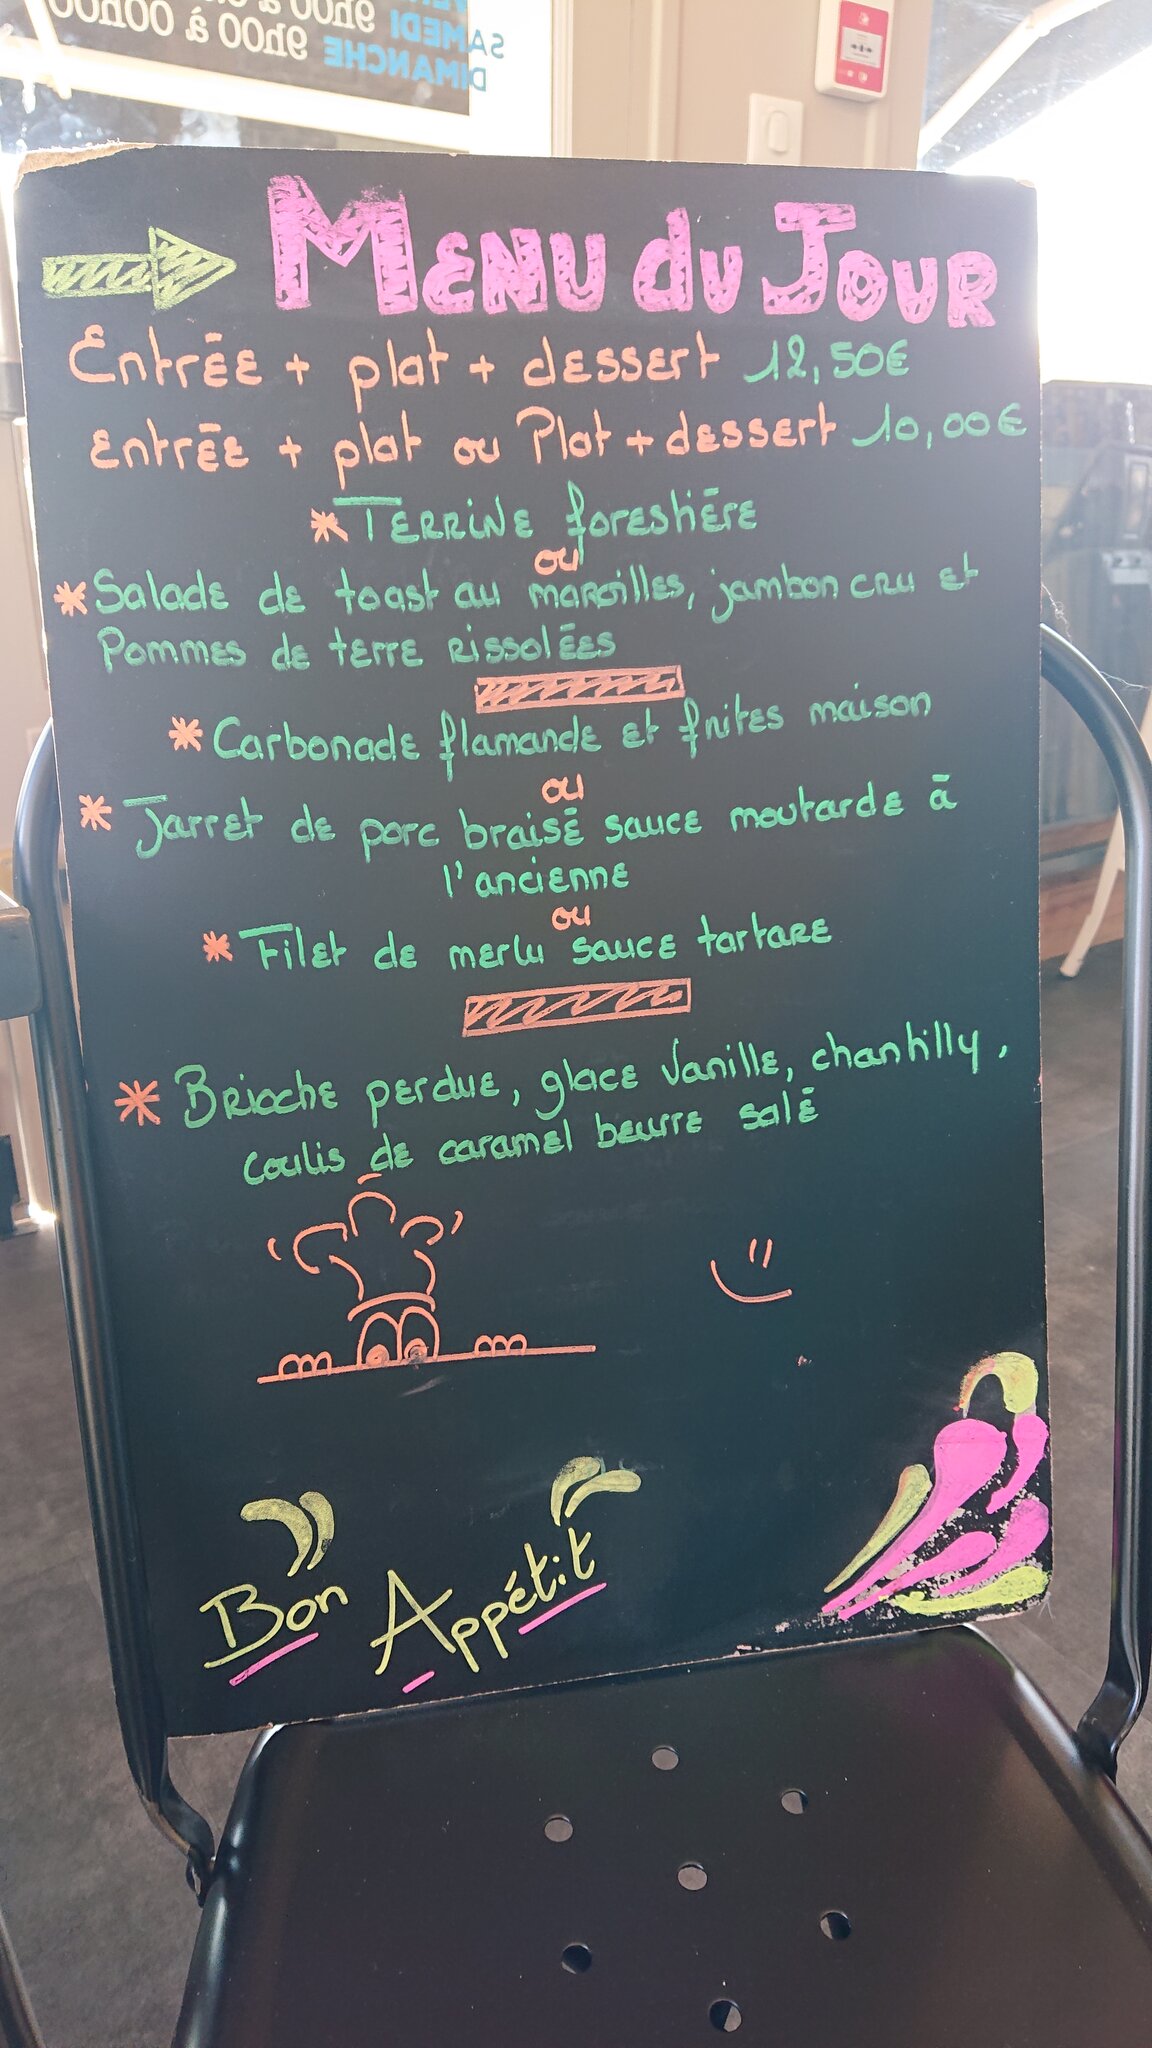 SAMEDI 9h00 à 00h00
DIMANCHE 9h00 à 00h00
MENU du JOUR
Entrée + plat + dessert 12,50€
entrée + plat ou Plat + dessert 10,00€
* Terrine forestière
ou
* Salade de toast au maroilles, jambon cru et
Pommes de terre rissolées
* Carbonade flamande et frites maison
ou
* Jarret de porc braisé sauce moutarde à
l'ancienne
ou
* Filet de merlu sauce tartare
* Brioche perdue, glace Vanille, chantilly,
coulis de caramel beurre salé
Bon Appétit